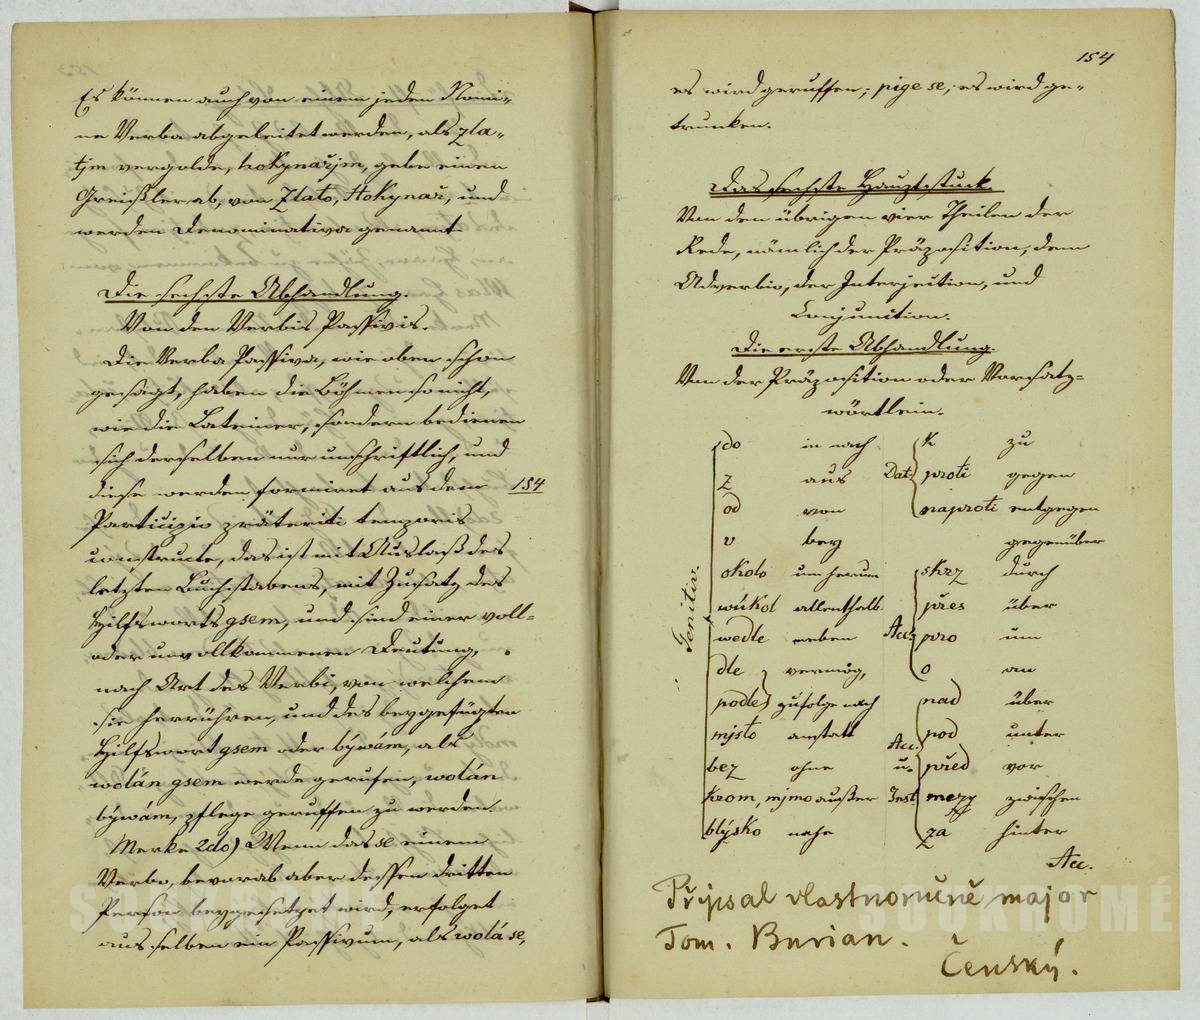 Es können auch von einem jeden Nomi-
ne Verba abgeleitet werden, als zla-
tjm vergolde, hokynařjm, gebe einen
Greißler ab, von Zlato, Hokynař, und
werden Denominativa genannt.
Die sechste Abhandlung.
Von den Verbis Passivis.
Die Verba Passiva, wie oben schon
gesagt, haben die Böhmen so nicht,
wie die Lateiner, sondern bedienen
sich derselben nur umschriftlich, und
diese werden formiret aus dem 154
Participio präteriti temporis
constructe, das ist mit Auslaß des
letzten Buchstabens, mit Zusatz des
Hilfsworts gsem, und sind einer voll-
oder unvollkommenen Deutung,
nach Art des Verbi, von welchem
sie herrühren, und des beygefügten
Hilfswort gsem oder býwám, als
wolán gsem werde gerufen, wolán
býwám, pflege geruffen zu werden.
Merke 2do) Wenn das se einem
Verbo, bevorab aber dessen dritten
Person beygesetzet wird, erfolget
aus selben ein Passivum, als wolá se,
154
es wird geruffen; pige se, es wird ge-
trunken.
Das sechste Hauptstuck.
Von den übrigen vier Theilen der
Rede, nämlich der Präposition, dem
Adverbio, der Interjection, und
Conjunction.
Die erste Abhandlung.
Von der Präposition oder Vorsatz-
wörtlein.
do in nach k zu
z aus Dat. proti gegen
od von naproti entgegen
v bey gegenüber
okolo um herum skrz durch
wúkol allenthalb. přes über
Genitiv. wedle neben Acc. pro um
dle vermög, o an
podle zufolge nach nad über
mjsto anstatt pod unter
Acc.
bez ohne u. před vor
krom, mjmo außer Inst. mezy zwischen
blýsko nahe za hinter
Acc.
Přjpsal vlastnoručně major
Tom. Burian.
Čenský.
SOUKROMÉ